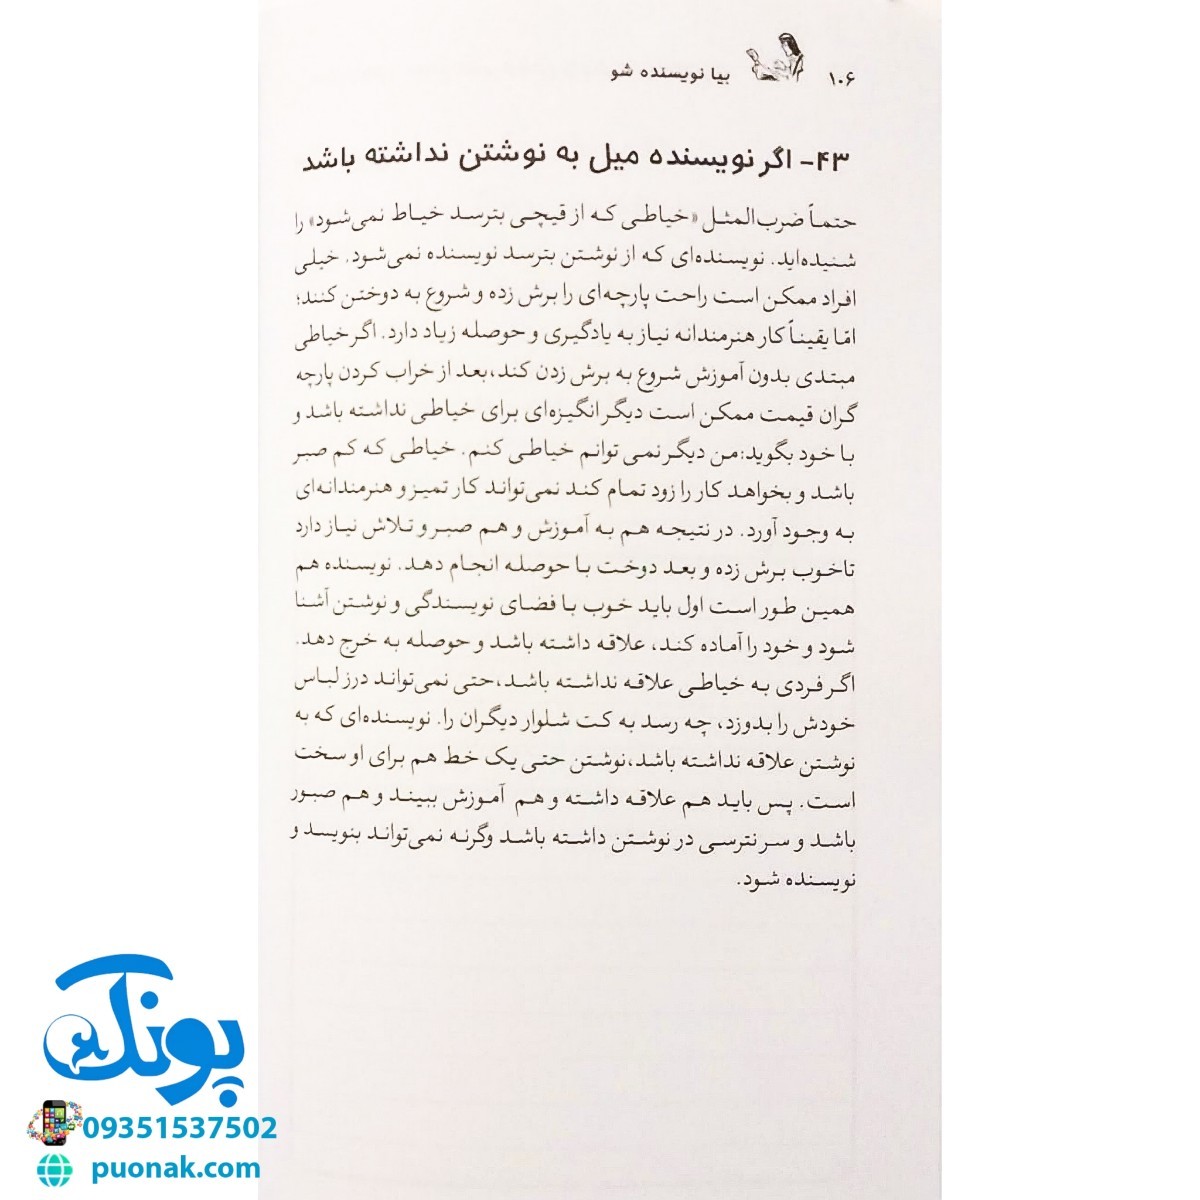 ۱۰۶ بیا نویسنده شو
۴۳- اگر نویسنده میل به نوشتن نداشته باشد
حتماً ضرب‌المثل «خیاطی که از قیچی بترسد خیاط نمی‌شود» را
شنیده‌اید. نویسنده‌ای که از نوشتن بترسد نویسنده نمی‌شود. خیلی
افراد ممکن است راحت پارچه‌ای را برش زده و شروع به دوختن کنند؛
امّا یقیناً کار هنرمندانه نیاز به یادگیری و حوصله زیاد دارد. اگر خیاطی
مبتدی بدون آموزش شروع به برش زدن کند، بعد از خراب کردن پارچه
گران قیمت ممکن است دیگر انگیزه‌ای برای خیاطی نداشته باشد و
با خود بگوید: من دیگر نمی توانم خیاطی کنم. خیاطی که کم صبر
باشد و بخواهد کار را زود تمام کند نمی‌تواند کار تمیز و هنرمندانه‌ای
به وجود آورد. در نتیجه هم به آموزش و هم صبر و تلاش نیاز دارد
تاخوب برش زده و بعد دوخت با حوصله انجام دهد. نویسنده هم
همین طور است اول باید خوب با فضای نویسندگی و نوشتن آشنا
شود و خود را آماده کند، علاقه داشته باشد و حوصله به خرج دهد.
اگر فردی به خیاطی علاقه نداشته باشد، حتی نمی‌تواند درز لباس
خودش را بدوزد، چه رسد به کت شلوار دیگران را. نویسنده‌ای که به
نوشتن علاقه نداشته باشد، نوشتن حتی یک خط هم برای او سخت
است. پس باید هم علاقه داشته و هم آموزش ببیند و هم صبور
باشد و سر نترسی در نوشتن داشته باشد وگرنه نمی‌تواند بنویسد و
نویسنده شود.
پونک
09351537502
puonak.com